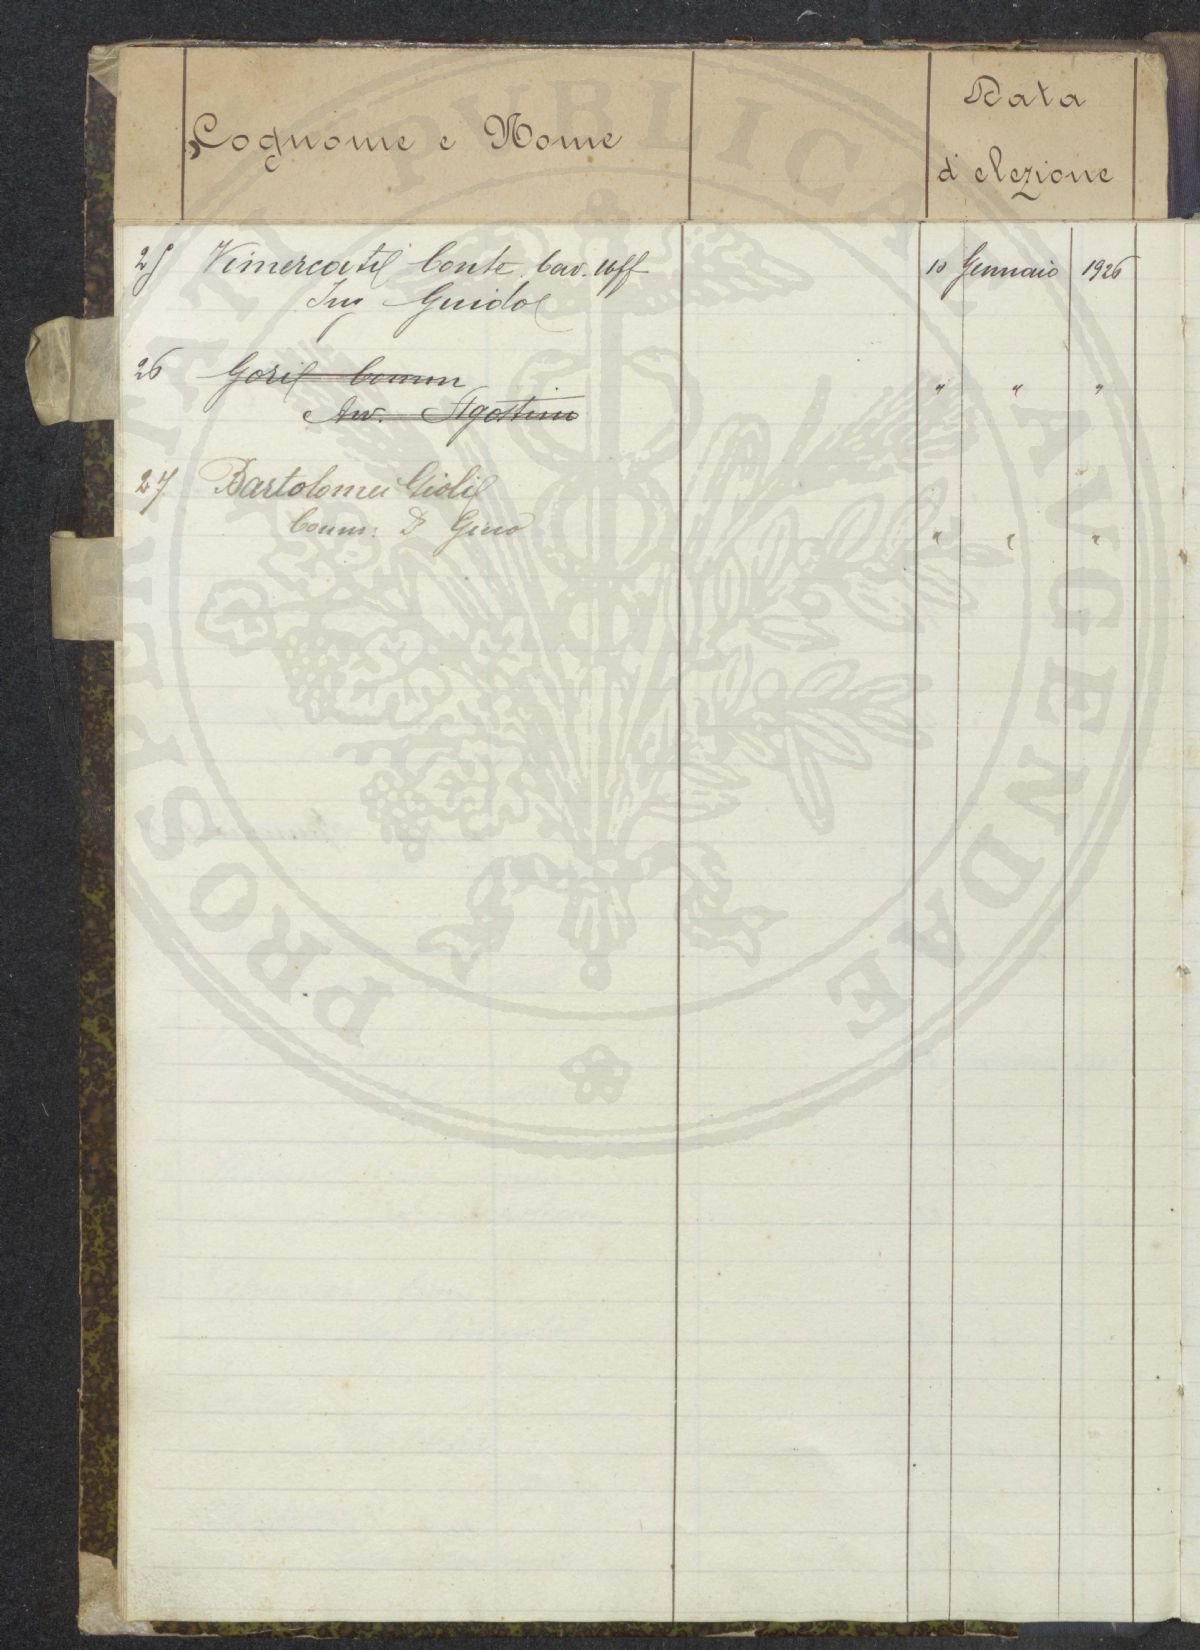 Cognome e Nome
Data
d'elezione
25 Vimercati Conte Cav. Uff
Ing Guido
10 Gennaio 1926
26 Gori Comm
Avv. Agostino
" " "
27 Bartolomei Gioli
Comm: D Gino
" " "
PROSPERITATI PVBLICAE AVGENDAE